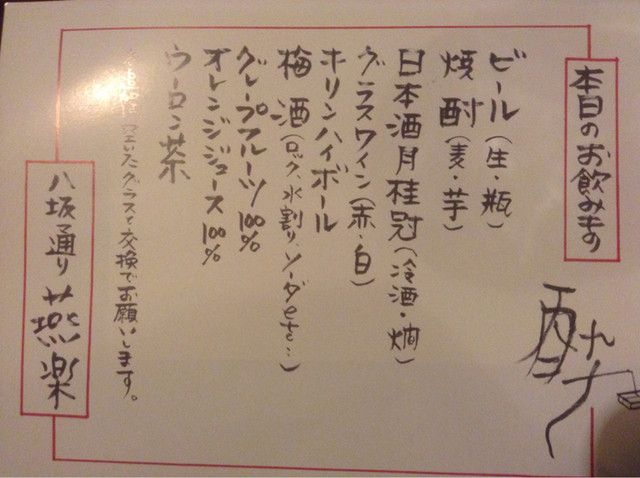 本日のお飲みもの
酔
ビール(生・瓶)
焼酎(麦・芋)
日本酒月桂冠(冷酒・燗)
グラスワイン(赤・白)
ホリンハイボール
梅酒(ロック、水割り、ソーダetc…)
グレープフルーツ100%
オレンジジュース100%
ウーロン茶
空いたグラスと交換でお願いします。
八坂通り 燕楽